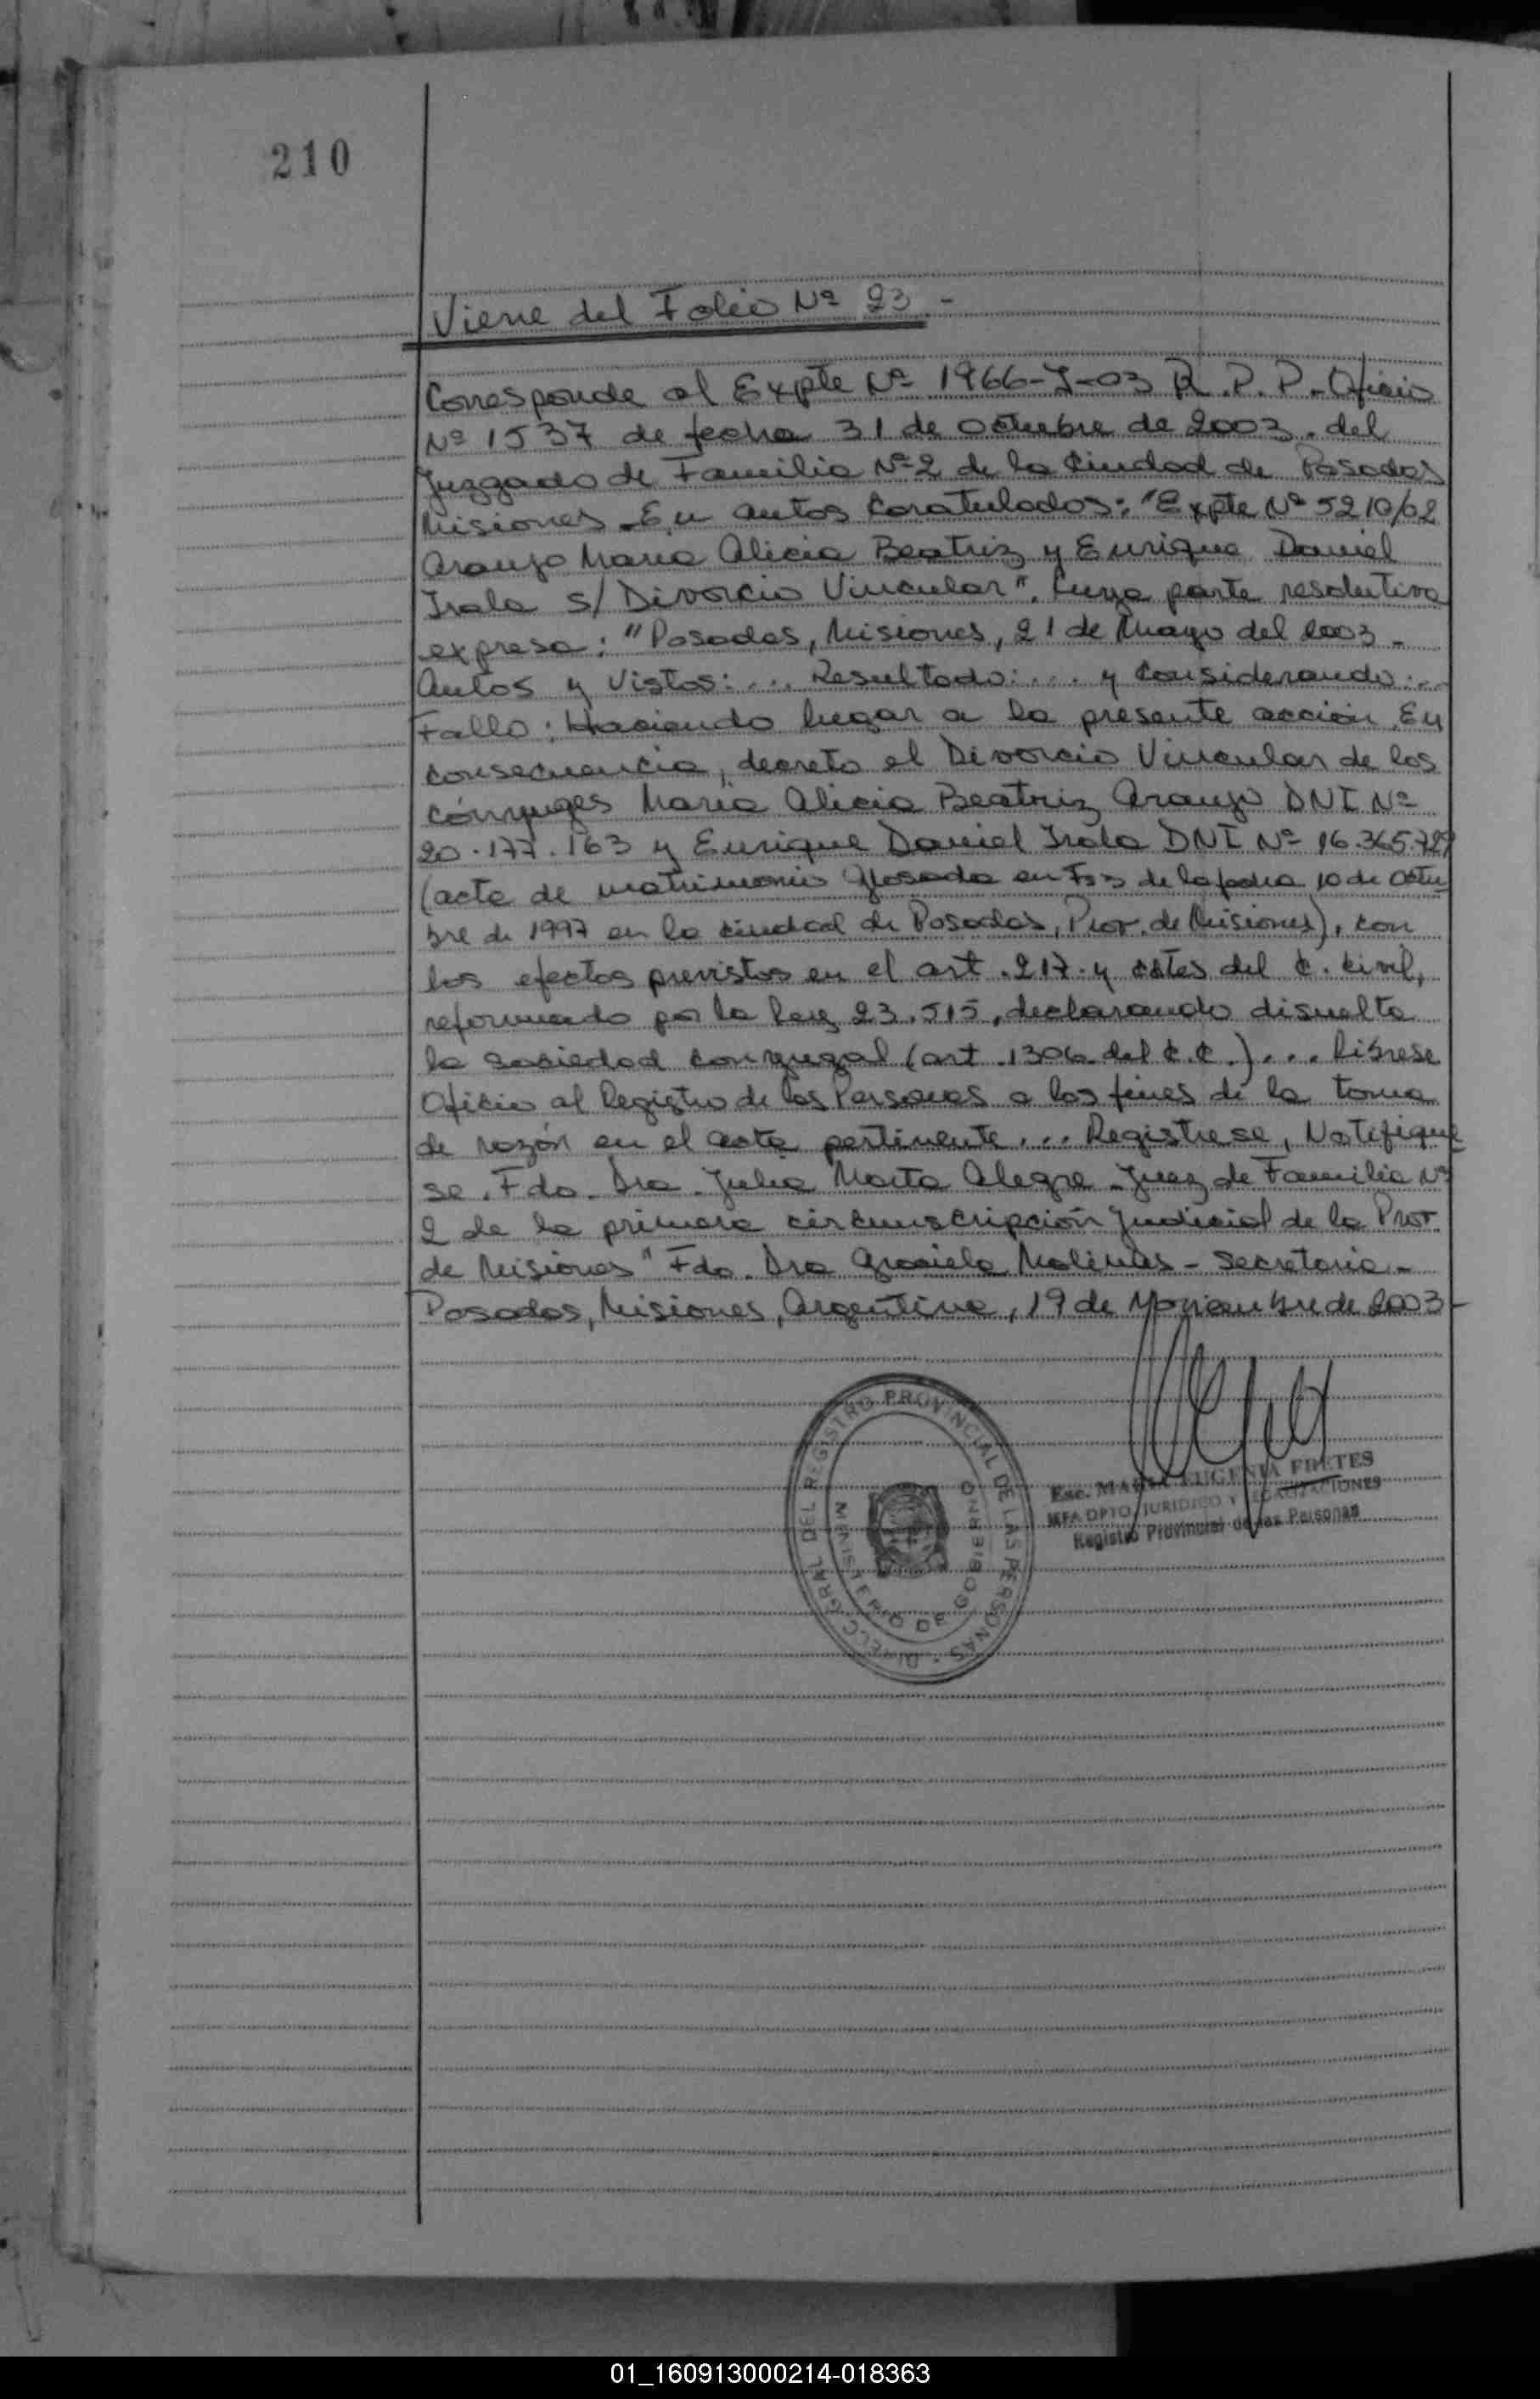 210
Viene del Folio Nº 23.-
Corresponde al Expte Nº 1966-I-03 R.P.P.- Oficio
Nº 1537 de fecha 31 de Octubre de 2003. del
Juzgado de Familia Nº 2 de la Ciudad de Posadas
Misiones. En autos Caratulados: "Expte Nº 5210/02
Araujo Maria Alicia Beatriz y Enrique Daniel
Irala s/ Divorcio Vincular". Cuya parte resolutiva
expresa: "Posadas, Misiones, 21 de Mayo del 2003.-
Autos y Vistos: ... Resultado: ... y Considerando: ...
Fallo: Haciendo lugar a la presente acción. En
consecuencia, decreto el Divorcio Vincular de los
cónyuges María Alicia Beatriz Araujo DNI Nº
20.177.163 y Enrique Daniel Irala DNI Nº 16.365.729
(acta de matrimonio glosada en Fs 3 de la fecha 10 de Octu
bre de 1997 en la ciudad de Posadas, Prov. de Misiones), con
los efectos previstos en el art. 217 y cctes del C. Civil,
reformado por la Ley 23.515, declarando disuelta
la sociedad conyugal (art 1306 del C.C.) ... Líbrese
Oficio al Registro de las Personas a los fines de la toma
de razón en el acta pertinente ... Regístrese, Notifíque
se. Fdo. Dra. Julia Marta Alegre - Juez de Familia Nº
2 de la primera circunscripción Judicial de la Prov.
de Misiones" Fdo. Dra Graciela - Secretaria.-
Posadas, Misiones, Argentina, 19 de Noviembre de 2003-
DIRECC. GRAL. DEL REGISTRO PROVINCIAL DE LAS PERSONAS
MINISTERIO DE GOBIERNO
Esc. MARIA EUGENIA FRETES
JEFA DPTO. JURIDICO Y LEGALIZACIONES
Registro Provincial de las Personas
01_160913000214-018363